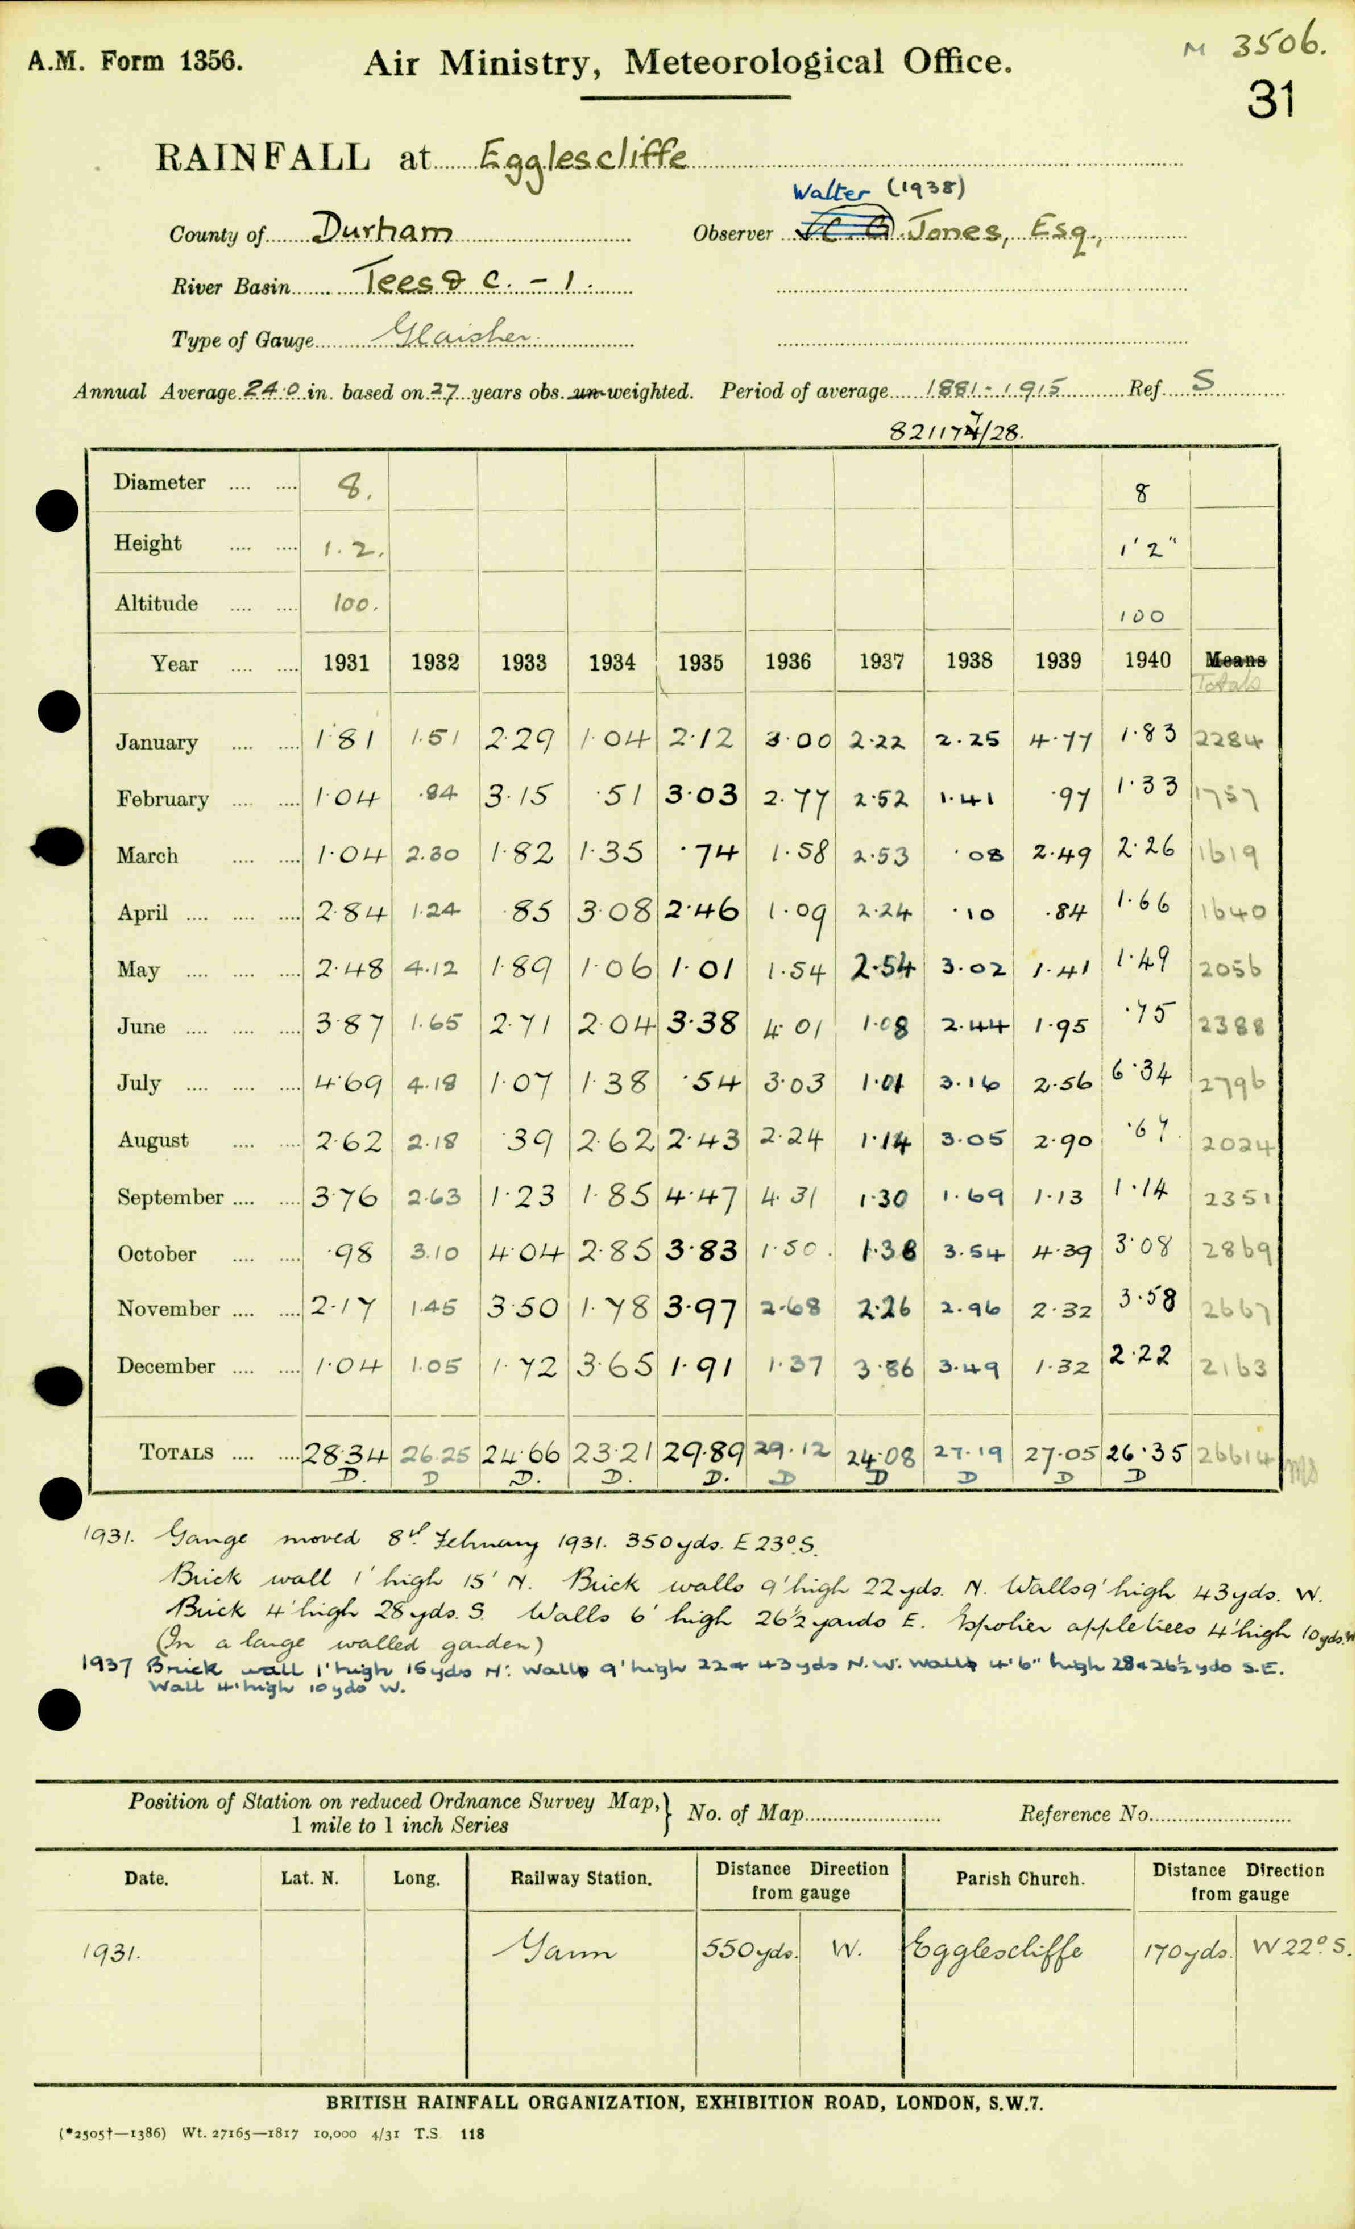 A.M. Form 1356. Air Ministry, Meteorological Office. M 3506.
31
RAINFALL at Egglescliffe
Walter (1938)
County of Durham Observer Jones, Esq.,
River Basin Tees & C. - 1.
Type of Gauge Glaisher.
Annual Average 24.0 in. based on 27 years obs. un-weighted. Period of average 1881-1915 Ref. S
Diameter .... .... 8. 8
Height .... .... 1.2. 1' 2"
Altitude .... .... 100. 100
Year .... .... 1931 1932 1933 1934 1935 1936 1937 1938 1939 1940 Means
Totals
January .... .... 1.81 1.51 2.29 1.04 2.12 3.00 2.22 2.25 4.77 1.83 2284
February .... .... 1.04 .84 3.15 .51 3.03 2.77 2.52 1.41 .97 1.33 1757
March .... .... 1.04 2.30 1.82 1.35 .74 1.58 2.53 .08 2.49 2.26 1619
April .... .... .... 2.84 1.24 .85 3.08 2.46 1.09 2.24 .10 .84 1.66 1640
May .... .... .... 2.48 4.12 1.89 1.06 1.01 1.54 2.54 3.02 1.41 1.49 2056
June .... .... .... 3.87 1.65 2.71 2.04 3.38 4.01 1.08 2.44 1.95 .75 2388
July .... .... .... 4.69 4.18 1.07 1.38 .54 3.03 1.01 3.16 2.56 6.34 2796
August .... .... 2.62 2.18 .39 2.62 2.43 2.24 1.14 3.05 2.90 .67 2024
September .... .... 3.76 2.63 1.23 1.85 4.47 4.31 1.30 1.69 1.13 1.14 2351
October .... .... .98 3.10 4.04 2.85 3.83 1.50 1.38 3.54 4.39 3.08 2869
November .... .... 2.17 1.45 3.50 1.78 3.97 2.68 2.26 2.96 2.32 3.58 2667
December .... .... 1.04 1.05 1.72 3.65 1.91 1.37 3.86 3.49 1.32 2.22 2163
TOTALS .... .... 28.34 26.25 24.66 23.21 29.89 29.12 24.08 27.19 27.05 26.35 26614 ms
D. D D. D. D. D D D D D
1931. Gauge moved 8th February 1931. 350yds. E 23° S.
Brick wall 1' high 15' N. Brick walls 9' high 22yds. N. Walls 9' high 43yds. W.
Brick 4' high 28yds. S. Walls 6' high 26½ yards E. Espolier appletrees 4' high 10yds. W
(In a large walled garden)
1937 Brick wall 1' high 15yds N: Walls 9' high 22 & 43yds N.W. Walls 4'6" high 28 & 26½ yds S.E.
Wall 4' high 10yds W.
Position of Station on reduced Ordnance Survey Map,} No. of Map Reference No.
1 mile to 1 inch Series
Date. Lat. N. Long. Railway Station. Distance Direction from gauge Parish Church. Distance Direction from gauge
1931. Yarm 550yds. W. Egglescliffe 170yds. W 22° S.
BRITISH RAINFALL ORGANIZATION, EXHIBITION ROAD, LONDON, S.W.7.
(*2505†—1386) Wt. 27165—1817 10,000 4/31 T.S. 118